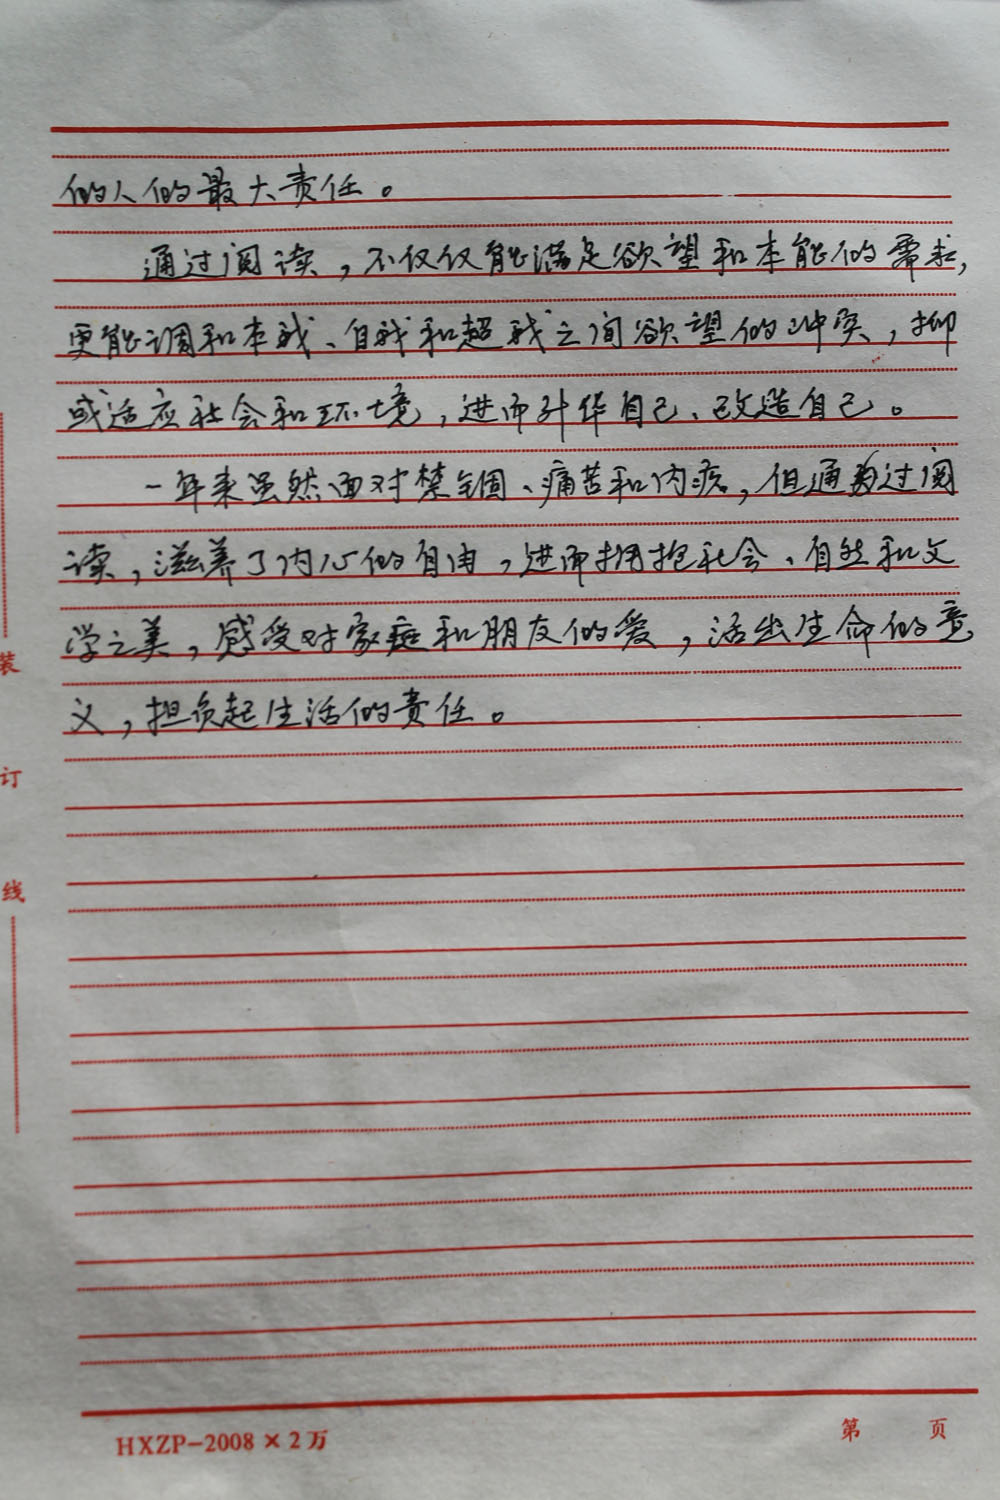 的人的最大责任。
通过阅读，不仅仅能满足欲望和本能的需求，
更能调和本我、自我和超我之间欲望的冲突，抑
或适应社会和环境，进而升华自己、改造自己。
一年来虽然面对禁锢、痛苦和内疚，但通过阅
读，滋养了内心的自由，进而拥抱社会、自然和文
学之美，感受对家庭和朋友的爱，活出生命的意
义，担负起生活的责任。
装
订
线
HXZP-2008×2万
第 页